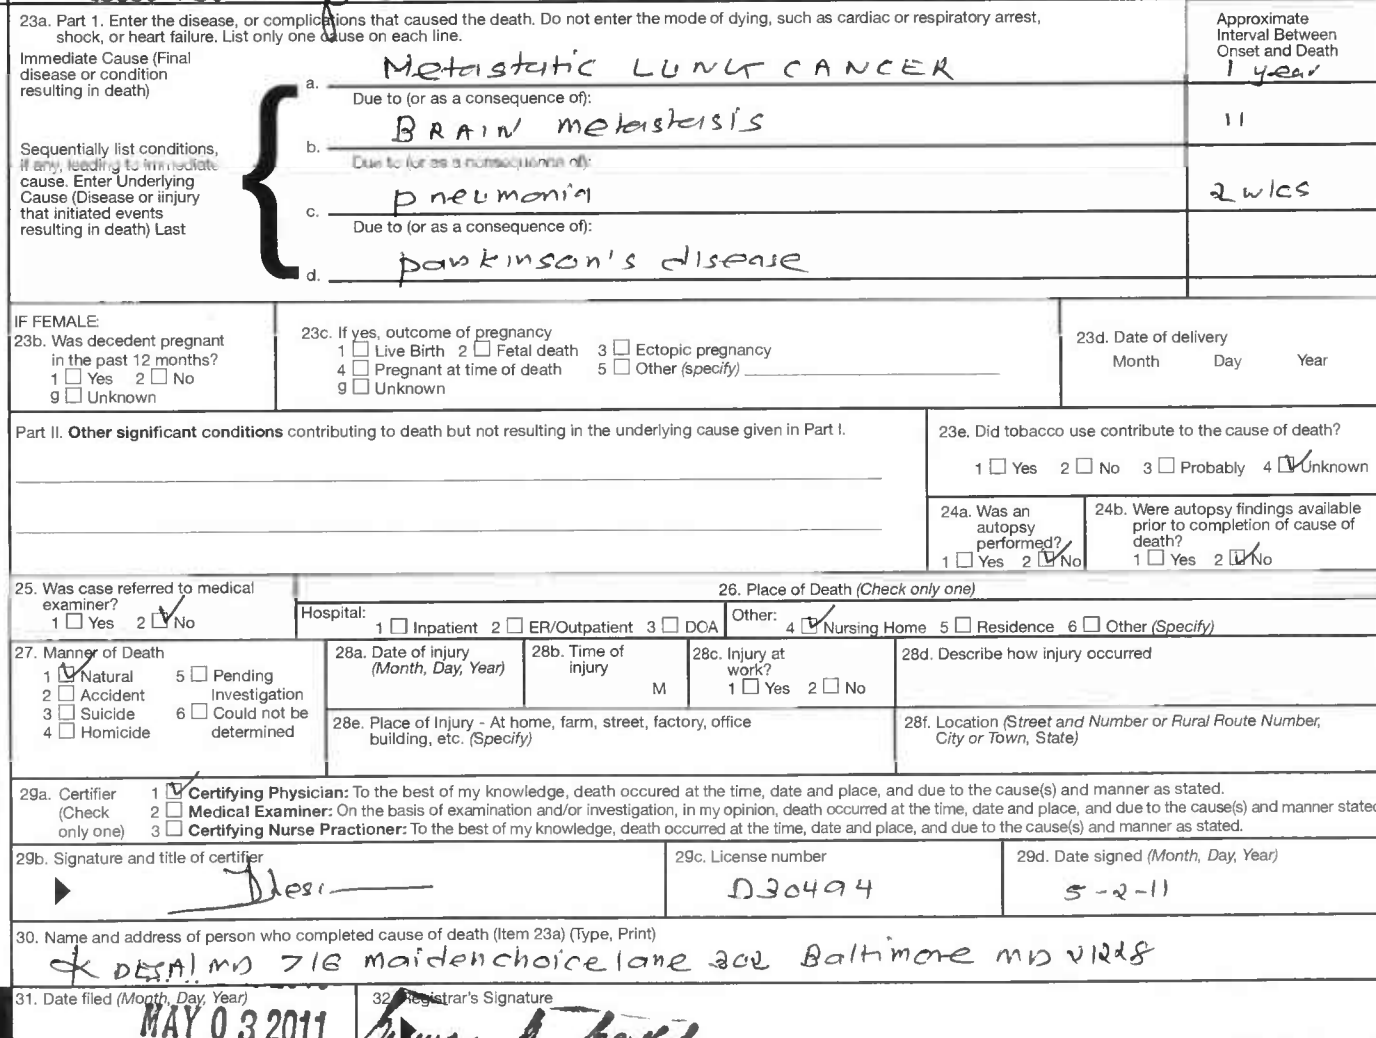 23a. Part 1. Enter the disease, or complications that caused the death. Do not enter the mode of dying, such as cardiac or respiratory arrest,
shock, or heart failure. List only one cause on each line.
Approximate
Interval Between
Onset and Death
Immediate Cause (Final
disease or condition
resulting in death)
a. Metastatic LUNG CANCER
1 year
Due to (or as a consequence of):
b. BRAIN metastasis
11
Sequentially list conditions,
if any, leading to immediate
cause. Enter Underlying
Cause (Disease or iinjury
that initiated events
resulting in death) Last
Due to (or as a consequence of):
c. pneumonia
2 wks
Due to (or as a consequence of):
d. parkinson's disease
IF FEMALE:
23b. Was decedent pregnant
in the past 12 months?
1 Yes 2 No
9 Unknown
23c. If yes, outcome of pregnancy
1 Live Birth 2 Fetal death 3 Ectopic pregnancy
4 Pregnant at time of death 5 Other (specify)
9 Unknown
23d. Date of delivery
Month Day Year
Part II. Other significant conditions contributing to death but not resulting in the underlying cause given in Part I.
23e. Did tobacco use contribute to the cause of death?
1 Yes 2 No 3 Probably 4 Unknown
24a. Was an
autopsy
performed?
1 Yes 2 No
24b. Were autopsy findings available
prior to completion of cause of
death?
1 Yes 2 No
25. Was case referred to medical
examiner?
1 Yes 2 No
26. Place of Death (Check only one)
Hospital: 1 Inpatient 2 ER/Outpatient 3 DOA
Other: 4 Nursing Home 5 Residence 6 Other (Specify)
27. Manner of Death
1 Natural 5 Pending
2 Accident Investigation
3 Suicide 6 Could not be
4 Homicide determined
28a. Date of injury
(Month, Day, Year)
28b. Time of
injury
M
28c. Injury at
work?
1 Yes 2 No
28d. Describe how injury occurred
28e. Place of Injury - At home, farm, street, factory, office
building, etc. (Specify)
28f. Location (Street and Number or Rural Route Number,
City or Town, State)
29a. Certifier
(Check
only one)
1 Certifying Physician: To the best of my knowledge, death occured at the time, date and place, and due to the cause(s) and manner as stated.
2 Medical Examiner: On the basis of examination and/or investigation, in my opinion, death occurred at the time, date and place, and due to the cause(s) and manner stated
3 Certifying Nurse Practioner: To the best of my knowledge, death occurred at the time, date and place, and due to the cause(s) and manner as stated.
29b. Signature and title of certifier
29c. License number
D30494
29d. Date signed (Month, Day, Year)
5-2-11
30. Name and address of person who completed cause of death (Item 23a) (Type, Print)
DESAI MD 716 maidenchoice lane 302 Baltimore MD 21228
31. Date filed (Month, Day, Year)
MAY 03 2011
32. Registrar's Signature